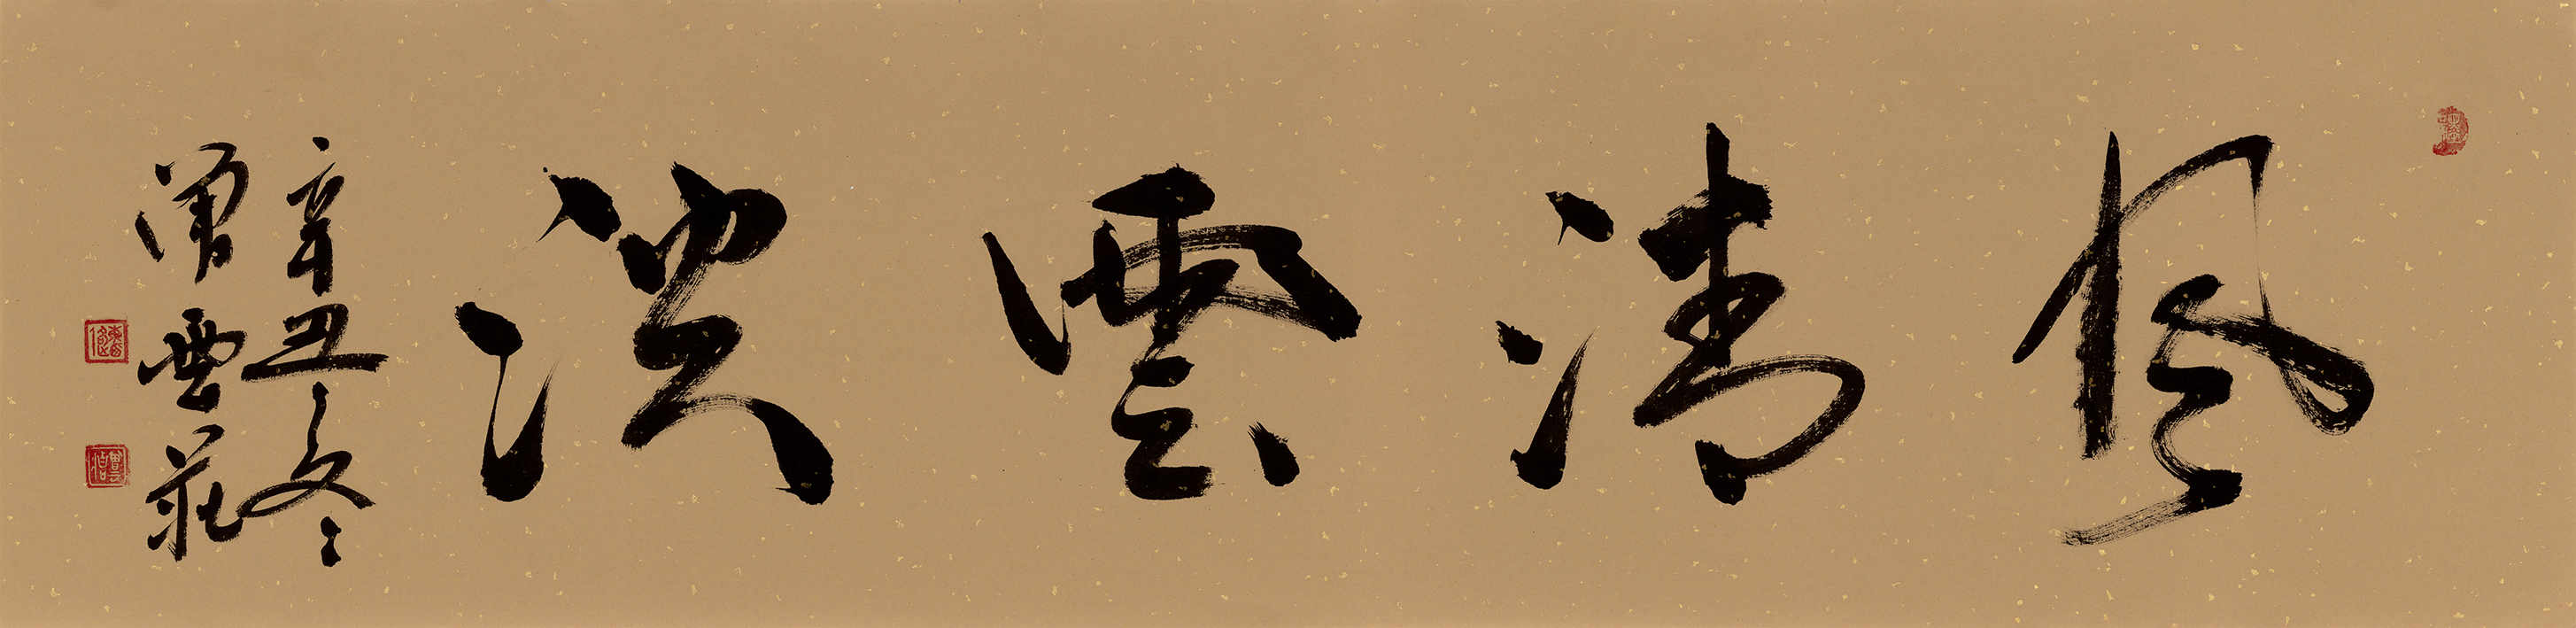 風清雲淡
辛丑冬
曾雲莊